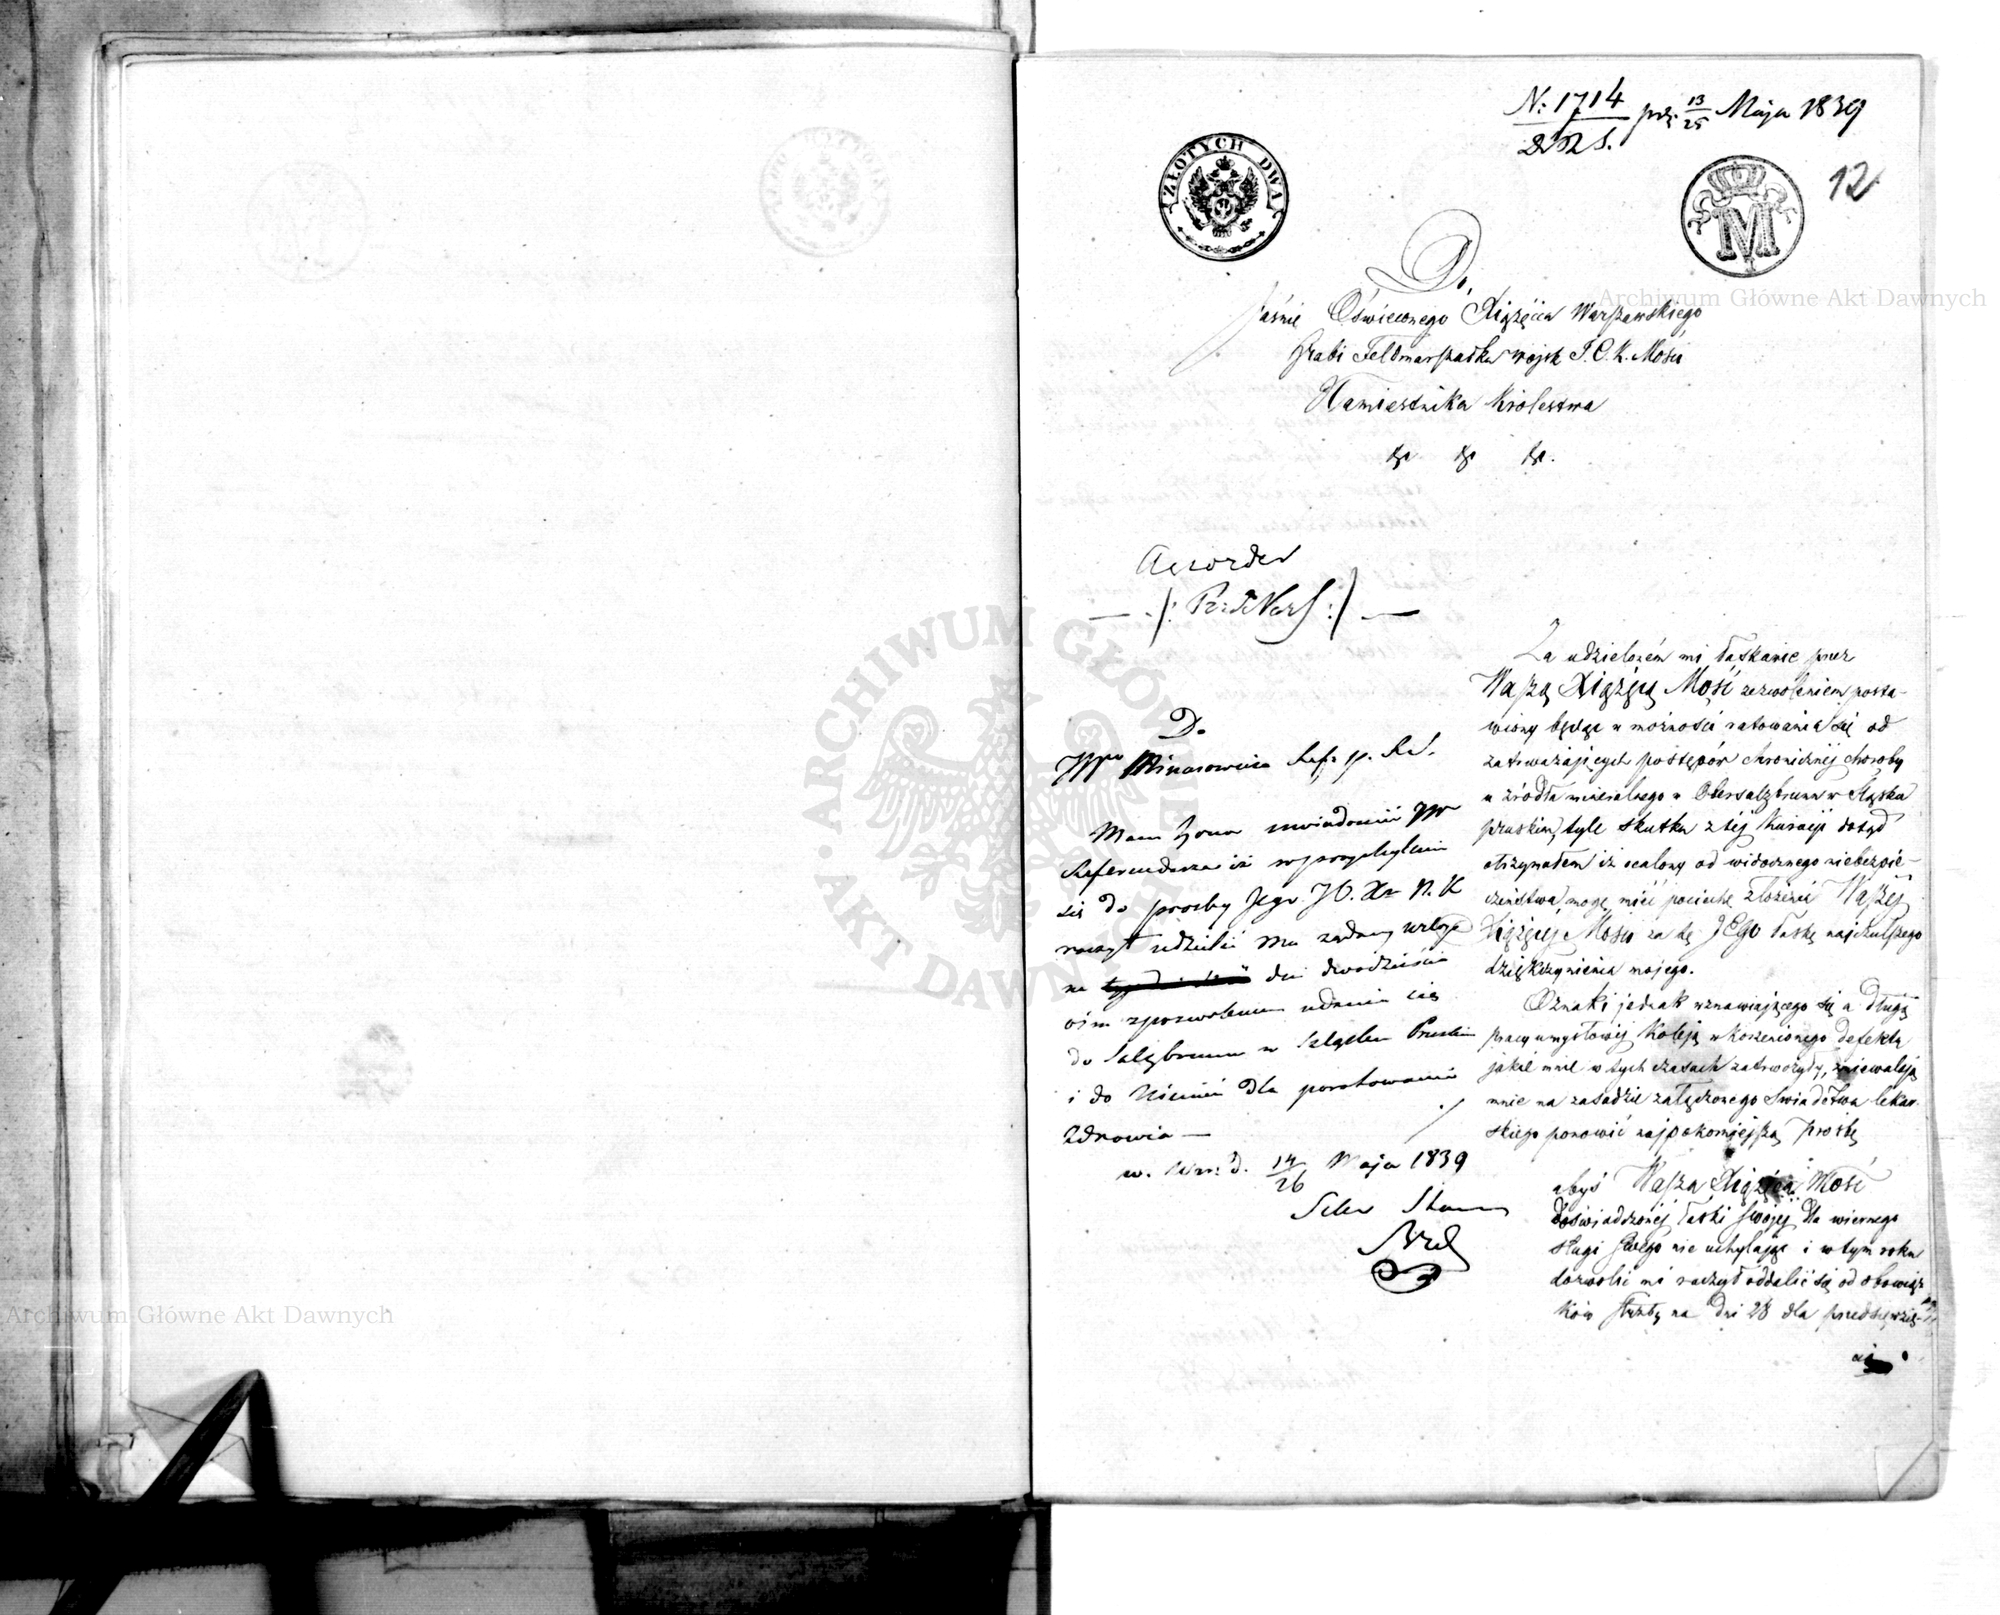 N: 1714 prz. 13/25 Maja 1839
12
ZŁOTYCH DWA
M
Do,
Jaśnie Oświeconego Xiążęcia Warszawskiego
Hrabi Feldmarszałka wojsk J.C.K. Mości
Namiestnika Królestwa
Accordée
D.
JWo Minasowicza Ref: p. R.S.
Mam honor uwiadomić JW
Referendarza iż w przychyleniu
się do prośby Jego J.O. Xże N. K
raczył udzielić mu żądany urlop
na dni dwadzieścia
ośm z pozwoleniem udania się
do Salzbrunn w Szląsku Pruskim
i do dla poratowania
Zdrowia —
w. War: d. 14/26 Maja 1839
Sekr Stanu
Za udzieloném mi łaskawie przez
Waszą Xiążęcą Mość zezwoleniem posta-
wiony będąc w możności ratowania się od
zatrważających postępów chronicznéj choroby
u źródła mineralnego w Obersalzbrunn w Śląsku
pruskim, tyle skutku z téj kuracji dotąd
otrzymałem iż ocalony od widocznego niebezpie-
czeństwa, mogę mieć pociechę złożenia Waszej
Xiążęcej Mości za tę JEgo łaskę najczulszego
dziękczynienia mojego.
Oznaki jednak wznawiającego się a długą
pracy umysłowéj koleją wkorzenionego defektu
jakie mnie w tych czasach zatrwożyły, zniewalają
mnie na zasadzie załączonego Świadectwa lékar-
skiego ponowić najpokorniejszą prośbę
abyś Wasza Xiążęca Mość
doświadczonéj łaski swojéj dla wiernego
sługi swego nie uchylając i w tym roku
dozwolić mi raczył oddalić się od obowiąz-
ków służby na dni 28 dla przedsięwzię-
cia
Archiwum Główne Akt Dawnych
Archiwum Główne Akt Dawnych
ARCHIWUM GŁÓWNE AKT DAWNYCH